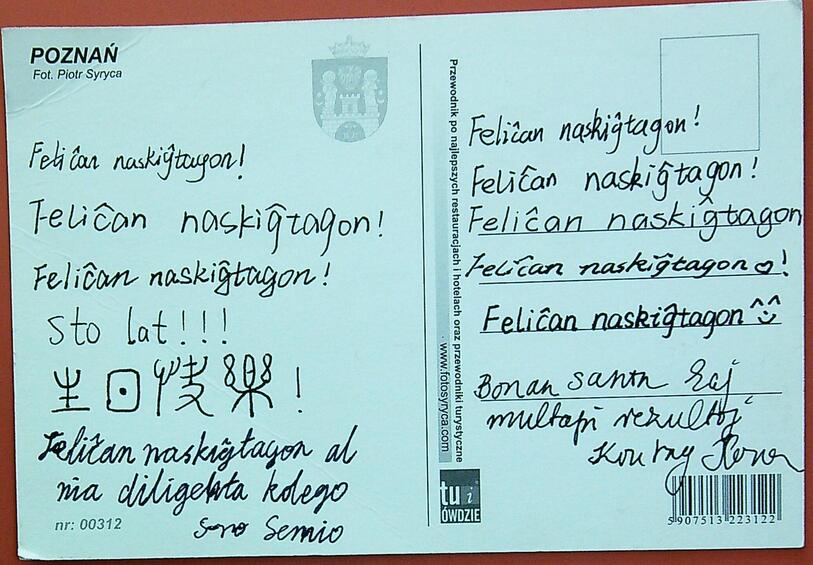 POZNAŃ
Fot. Piotr Syryca
Feliĉan naskiĝtagon!
Feliĉan naskiĝtagon!
Feliĉan naskiĝtagon!
Sto lat!!!
生日快樂!
Feliĉan naskiĝtagon al
nia diligenta kolego
Semio
nr: 00312
Przewodnik po najlepszych restauracjach i hotelach oraz przewodniki turystyczne
www.fotosyryca.com
tu i
ÓWDZIE
Feliĉan naskiĝtagon!
Feliĉan naskiĝtagon!
Feliĉan naskiĝtagon
Feliĉan naskiĝtagon!
Feliĉan naskiĝtagon^^
Bonan kaj
multaj rezultoj
5 907513 223122